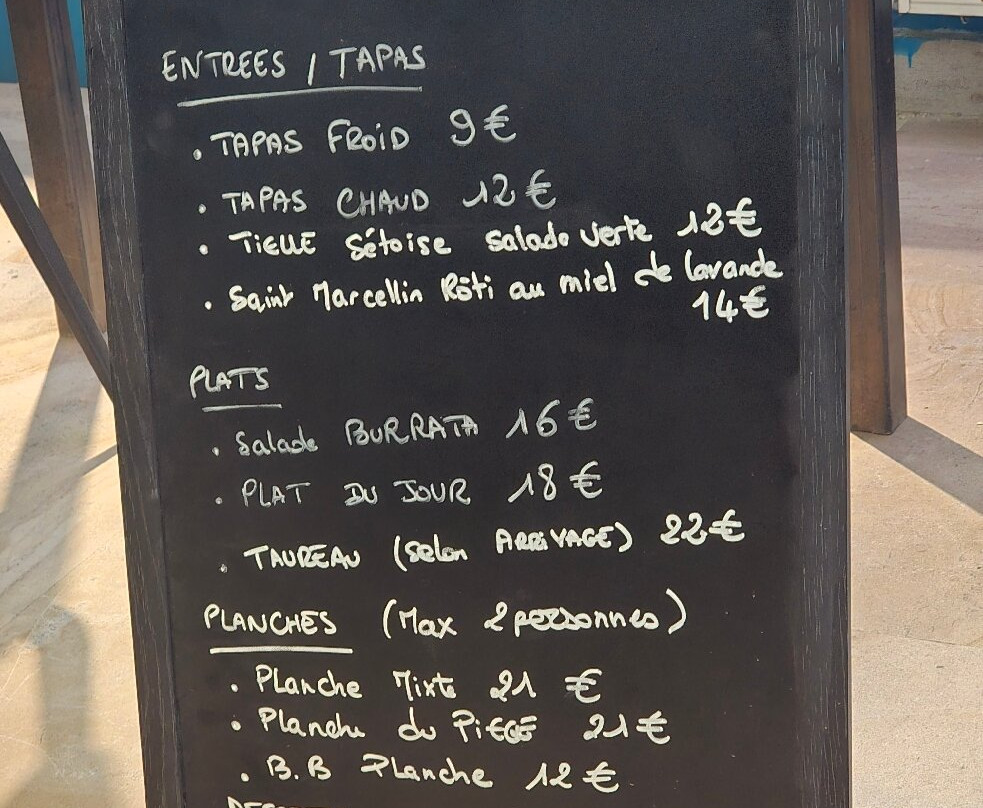 ENTREES / TAPAS
. TAPAS FROID 9€
. TAPAS CHAUD 12€
. TIELLE Sétoise Salade verte 12€
. Saint Marcellin Rôti au miel de lavande
14€
PLATS
. Salade BURRATA 16€
. PLAT DU JOUR 18€
. TAUREAU (selon ARRIVAGE) 22€
PLANCHES (Max 2 personnes)
. Planche Mixte 21 €
. Planche du PIEGE 21€
. B.B Planche 12€